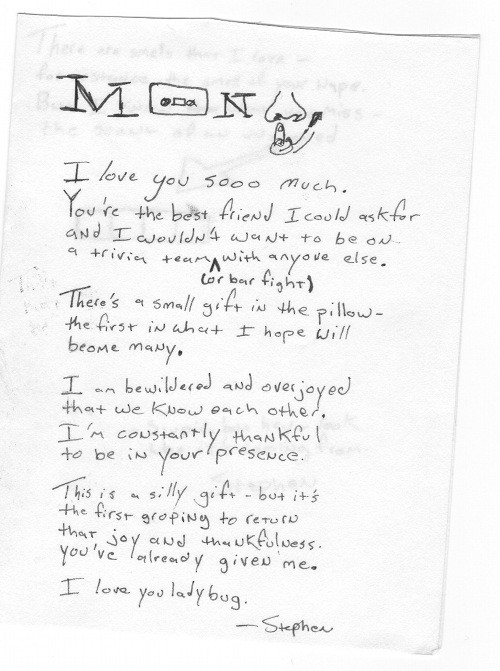 There are smells that I love -
M N
I love you sooo much.
You're the best friend I could ask for
and I wouldn't want to be on
a trivia team ^ with anyone else.
(or bar fight)
There's a small gift in the pillow-
the first in what I hope will
beome many.
I am bewildered and overjoyed
that we know each other.
I'm constantly thankful
to be in your presence.
This is a silly gift - but it's
the first groping to return
that joy and thankfulness
you've already given me.
I love you ladybug.
— Stephen